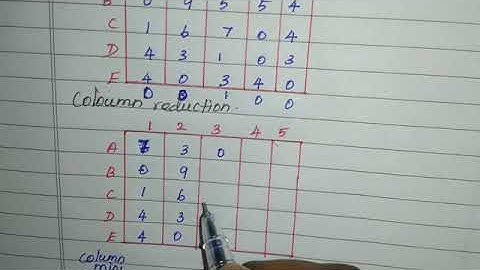 B 0 9 5 5 4
C 1 6 7 0 4
D 4 3 1 0 3
E 4 0 3 4 0
0 0 1 0 0
Coloumn reduction.
1 2 3 4 5
A 7 3 0
B 0 9
C 1 6
D 4 3
E 4 0
column
mini